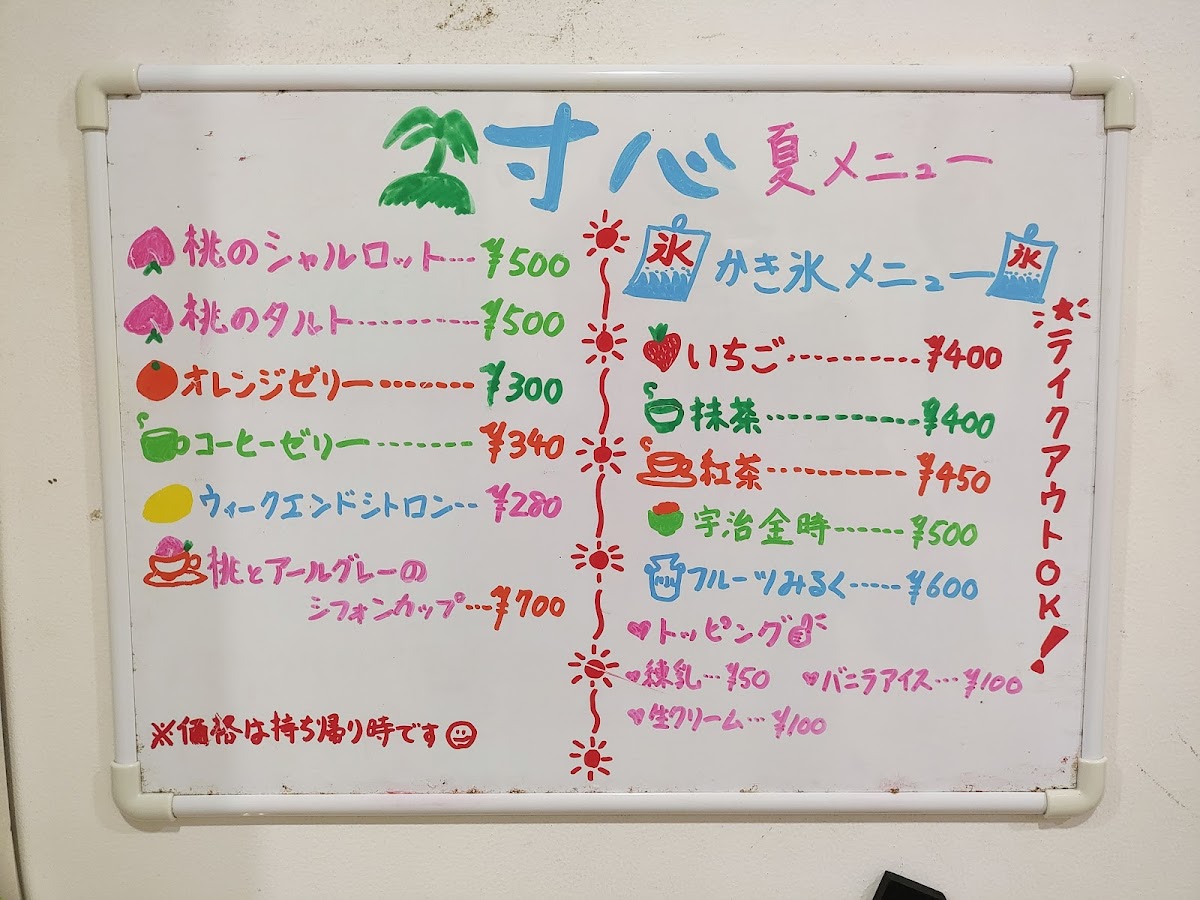 寸心 夏メニュー
桃のシャルロット…¥500
桃のタルト…………¥500
オレンジゼリー………¥300
コーヒーゼリー………¥340
ウィークエンドシトロン…¥280
桃とアールグレーの
シフォンカップ…¥700
※価格は持ち帰り時です
氷 かき氷メニュー 氷
いちご…………¥400
抹茶…………¥400
紅茶…………¥450
宇治金時………¥500
フルーツみるく……¥600
♥トッピング
♥練乳…¥50 ♥バニラアイス…¥100
♥生クリーム…¥100
★テイクアウトOK!